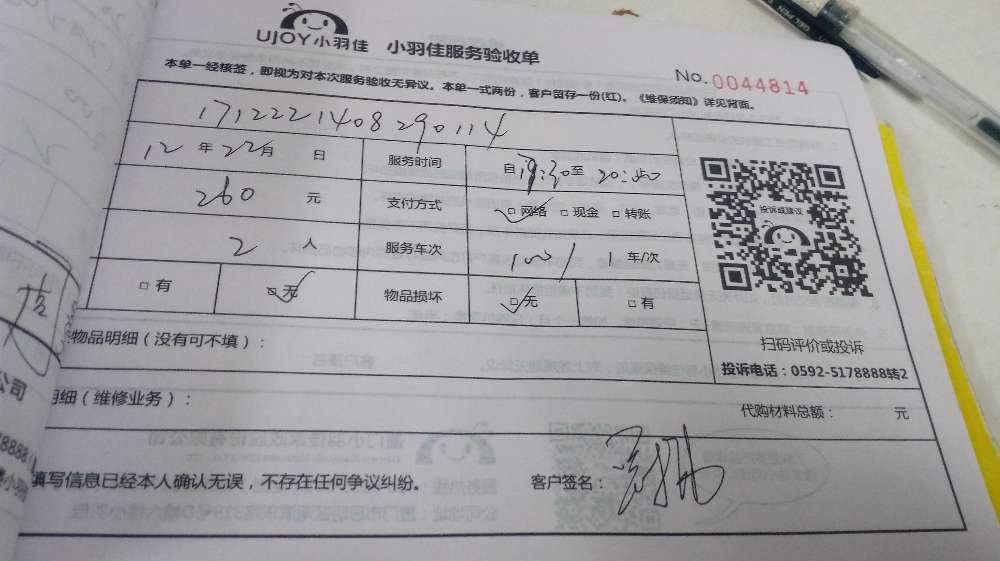 UJOY小羽佳 小羽佳服务验收单
No.0044814
本单一经核签，即视为对本次服务验收无异议。本单一式两份，客户留存一份(红)。《维保须知》详见背面。
1712221408290114
12 年 22 月 日 服务时间 自 19:30 至 20:40
260 元 支付方式 网络 现金 转账
2 人 服务车次 1 车/次
有 无 物品损坏 无 有
投诉或建议
扫码评价或投诉
投诉电话：0592-5178888转2
物品明细（没有可不填）：
明细（维修业务）： 代购材料总额： 元
填写信息已经本人确认无误，不存在任何争议纠纷。 客户签名：
公司